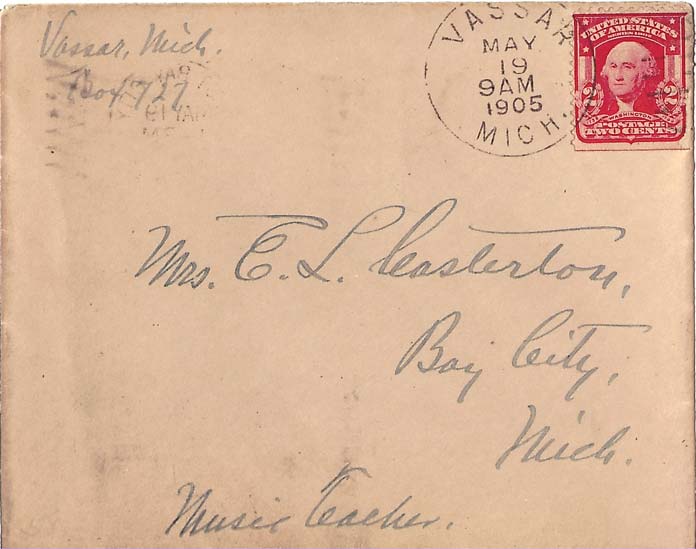 Vassar, Mich.
Box 727
VASSAR
MAY
19
9AM
1905
MICH.
UNITED STATES
OF AMERICA
SERIES 1902
2 2
WASHINGTON
POSTAGE
TWO CENTS
Mrs. C. L. Casterton,
Bay City,
Mich.
Music Teacher.